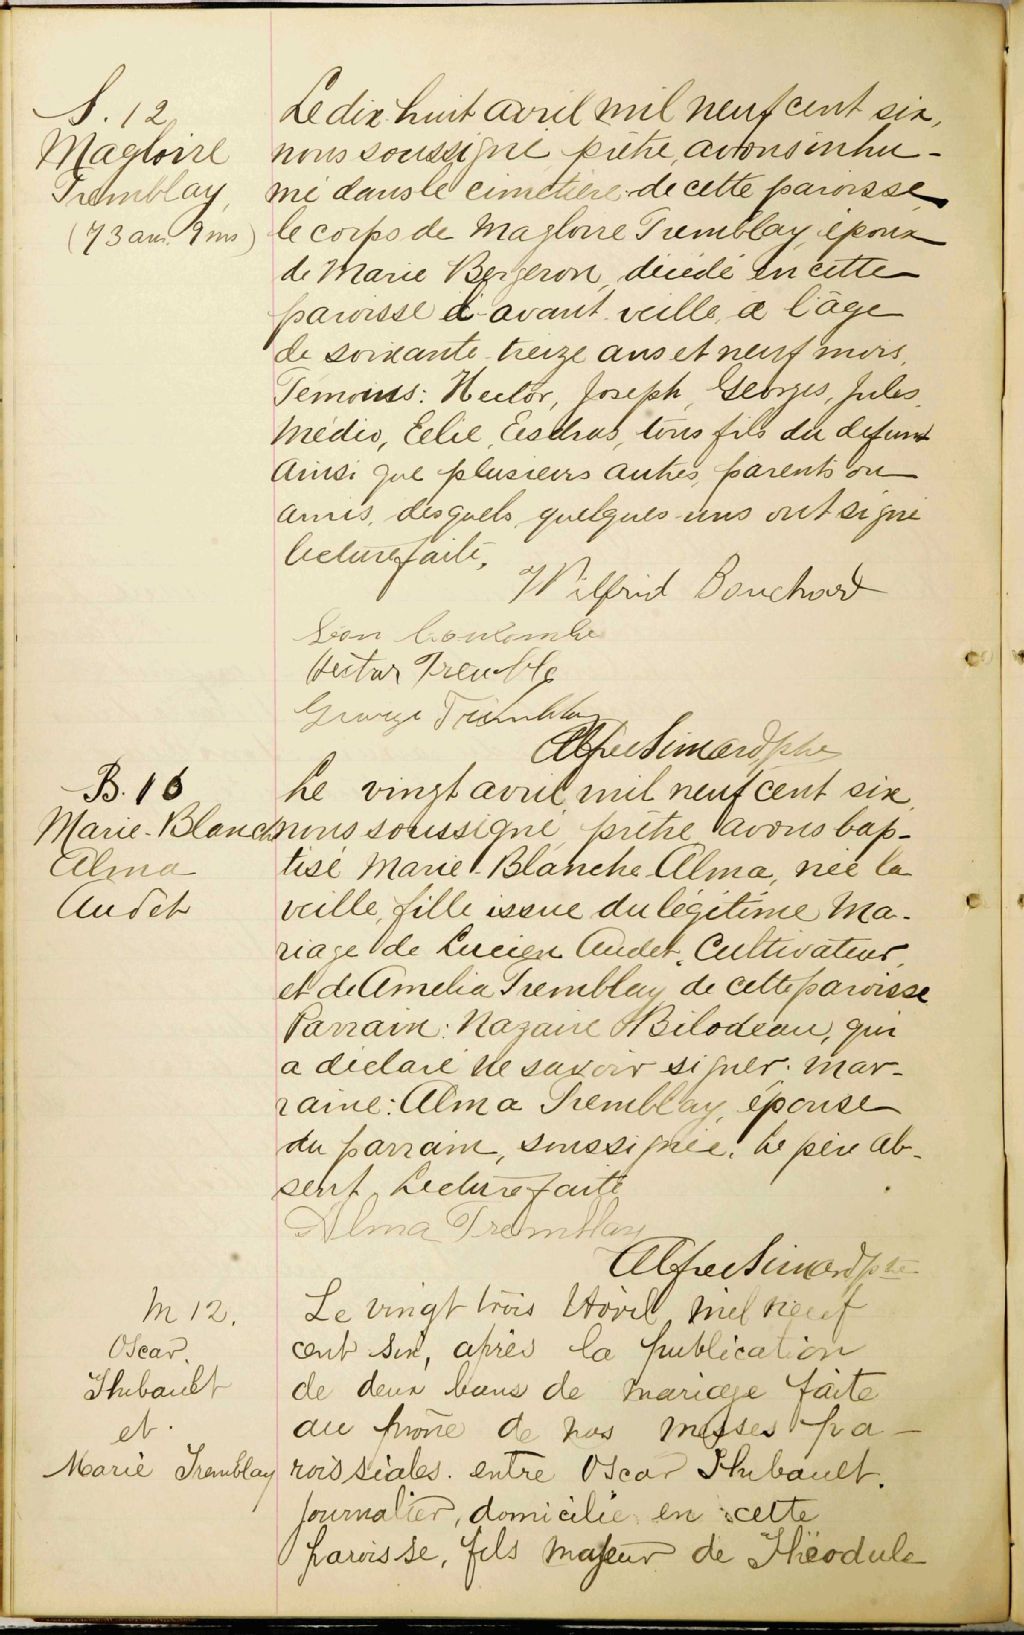 S. 12
Magloire
Tremblay,
(73 ans 9 ms)
Le dix-huit avril mil neuf cent six,
nous soussigné, prêtre, avons inhu-
mé dans le cimetière de cette paroisse,
le corps de Magloire Tremblay, époux
de Marie Bergeron, décédé en cette
paroisse d'avant-veille, à l'âge
de soixante-treize ans et neuf mois.
Témoins: Hector, Joseph, Georges, Jules,
Médéo, Eelie, Esdras, tous fils du défunt
ainsi que plusieurs autres, parents ou
amis, desquels quelques-uns ont signé
lecture faite.
Wilfrid Bouchard
Léon
Hector Tremble
George Tremblay
Alfred Simard ptre
B. 16
Marie-Blanche
Alma
Audet
Le vingt avril mil neuf cent six,
nous soussigné, prêtre, avons bap-
tisé Marie-Blanche-Alma, née la
veille, fille issue du légitime ma-
riage de Lucien Audet, Cultivateur,
et de Amelia Tremblay de cette paroisse
Parrain: Nazaire Bilodeau, qui
a déclaré ne savoir signer. Mar-
raine: Alma Tremblay, épouse
du parrain, soussignée. Le père ab-
sent. Lecture faite
Alma Tremblay
Alfred Simard ptre
M 12.
Oscar
Thibault
et
Marie Tremblay
Le vingt trois Avril, mil neuf
cent six, après la publication
de deux bans de mariage faite
au prône de nos messes pa-
roissiales. entre Oscar Thibault,
journalier, domicilié en cette
paroisse, fils majeur de Théodule